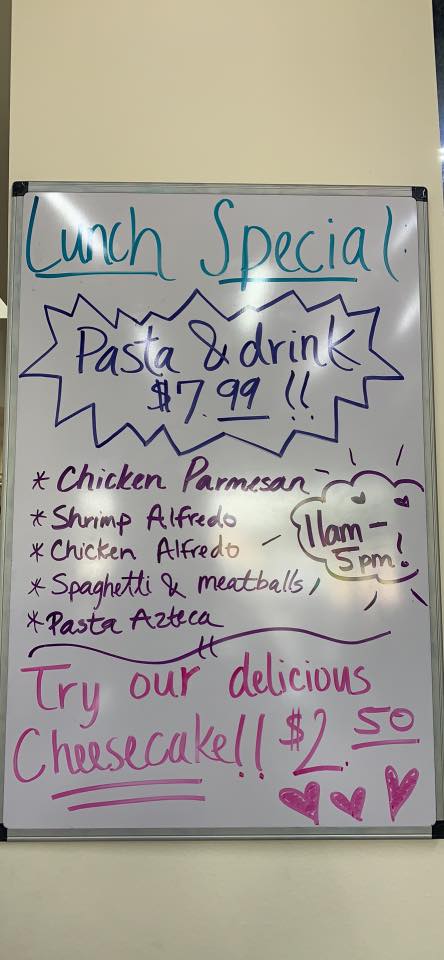 Lunch Special
Pasta & drink
$7.99 !!
* Chicken Parmesan
* Shrimp Alfredo
* Chicken Alfredo
* Spaghetti & meatballs
* Pasta Azteca
11am -
5pm!
Try our delicious
Cheesecake!! $2.50